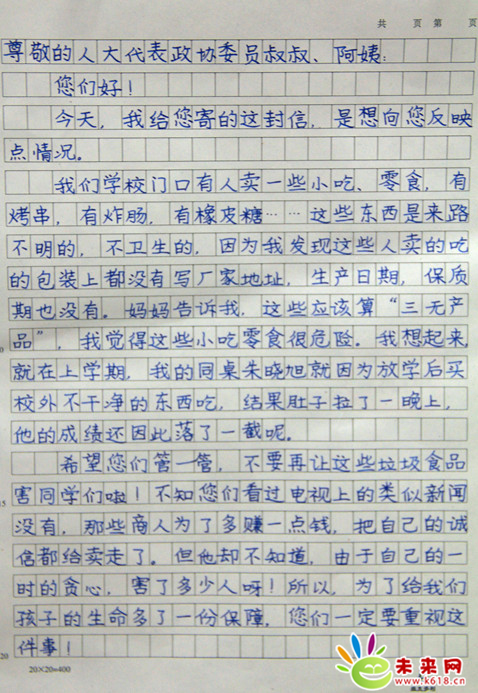 共 页 第 页
尊敬的人大代表政协委员叔叔、阿姨：
您们好！
今天，我给您寄的这封信，是想向您反映
点情况。
我们学校门口有人卖一些小吃、零食，有
烤串，有炸肠，有橡皮糖……这些东西是来路
不明的，不卫生的，因为我发现这些人卖的吃
的包装上都没有写厂家地址，生产日期，保质
期也没有。妈妈告诉我，这些应该算“三无产
品”，我觉得这些小吃零食很危险。我想起来，
就在上学期，我的同桌朱晓旭就因为放学后买
校外不干净的东西吃，结果肚子拉了一晚上，
他的成绩还因此落了一截呢。
希望您们管一管，不要再让这些垃圾食品
害同学们啦！不知您们看过电视上的类似新闻
没有，那些商人为了多赚一点钱，把自己的诚
信都给卖走了。但他却不知道，由于自己的一
时的贪心，害了多少人呀！所以，为了给我们
孩子的生命多了一份保障，您们一定要重视这
件事！
20
15
20×20=400
未来网
www.k618.cn